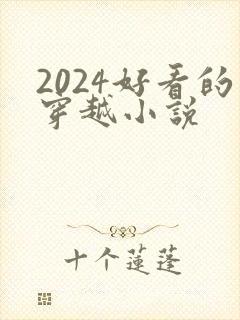 2024好看的
穿越小説
十个蓮蓬